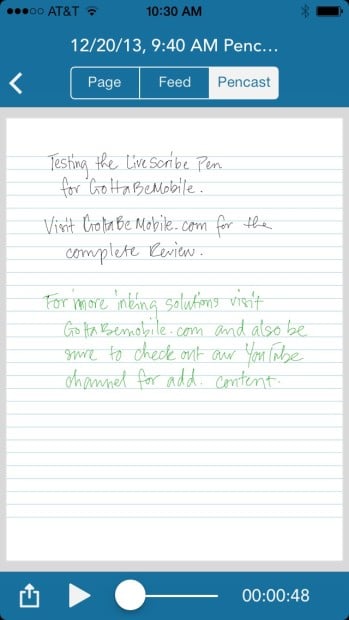 AT&T 10:30 AM
12/20/13, 9:40 AM Penc...
Page Feed Pencast
Testing the LiveScribe Pen
for GottaBeMobile.
Visit GottaBeMobile.com for the
complete Review.
For more inking solutions visit
GottaBemobile.com and also be
sure to check out our YouTube
channel for add. content.
00:00:48